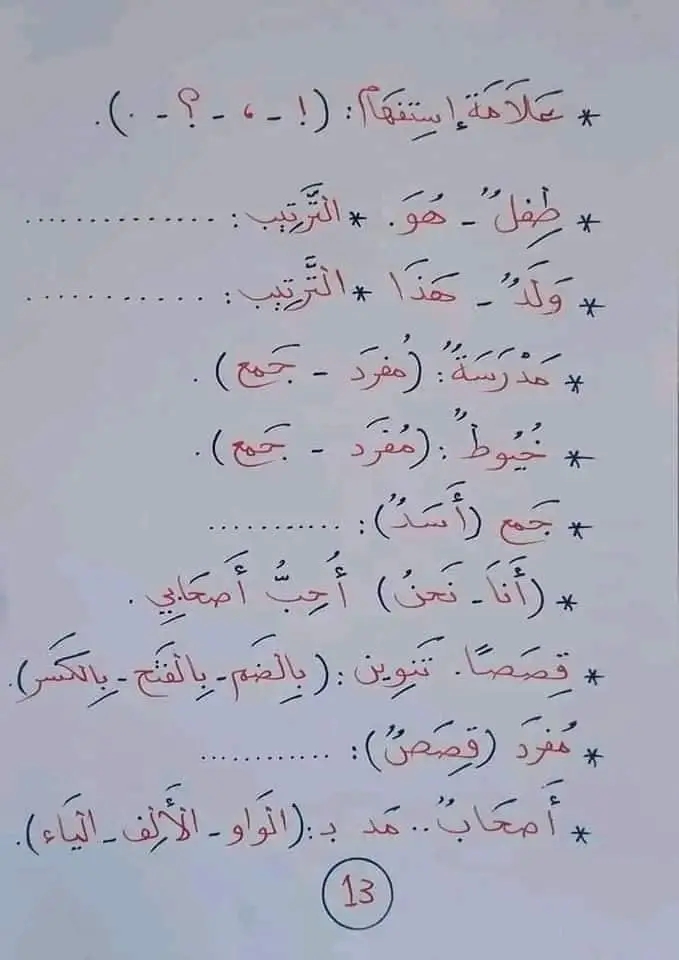 * عَلَامَة إِستِفهَام: (! - ، - ؟ - .).
* طِفلٌ - هُوَ. * التَّرتِيب: ..............
* وَلَدٌ - هَذَا * التَّرتِيب: .............
* مَدْرَسَةٌ: (مُفرَد - جَمع).
* خُيُوطٌ: (مُفرَد - جَمع).
* جَمع (أَسَدٌ): ............
* (أَنَا - نَحنُ) أُحِبُّ أَصحَابِي.
* قِصَصًا. تَنوِين: (بِالضَم - بِالفَتح - بِالكَسر).
* مُفرَد (قِصَصٌ): ............
* أَصحَابٌ.. مَد بـ: (الوَاو - الأَلِف - اليَاء).
13